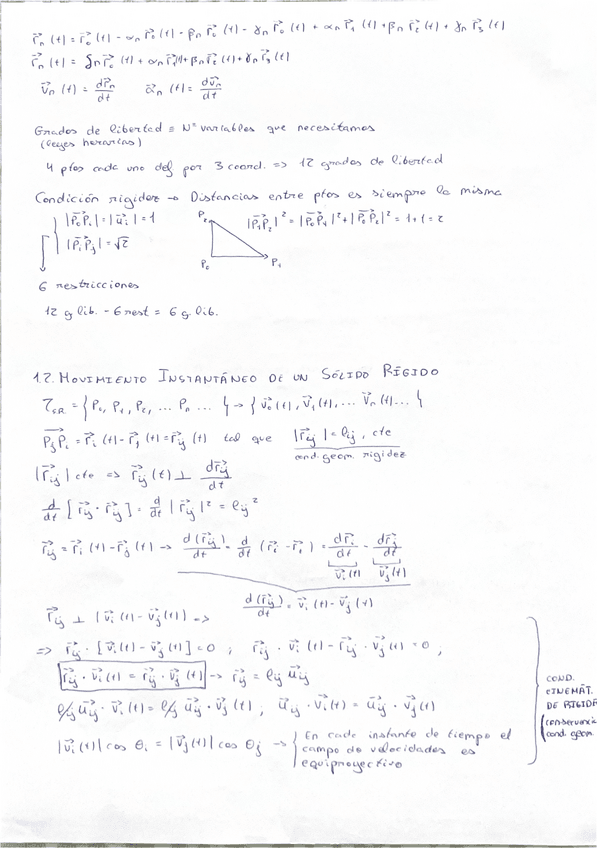 r⃗n (t) = r⃗o (t) - αn r⃗o (t) - βn r⃗o (t) - γn r⃗o (t) + αn r⃗1 (t) + βn r⃗2 (t) + γn r⃗3 (t)
r⃗n (t) = δn r⃗o (t) + αn r⃗1(t) + βn r⃗2 (t) + γn r⃗3 (t)
v⃗n (t) = dr⃗n/dt   a⃗n (t) = dv⃗n/dt
Grados de libertad ≡ Nº variables que necesitamos
(leyes horarias)
4 ptos cada uno def por 3 coord. => 12 grados de libertad
Condición rigidez → Distancias entre ptos es siempre la misma
|P⃗oPi| = |u⃗i| = 1
|PiPj| = √2
P2
Po
P1
|P1P2|² = |PoP1|² + |PoP2|² = 1 + 1 = 2
6 restricciones
12 g lib. - 6 rest = 6 g. lib.
1.2. MOVIMIENTO INSTANTÁNEO DE UN SÓLIDO RÍGIDO
τSR = { Po, P1, P2, ... Pn ... } → { v⃗o (t), v⃗1 (t), ... v⃗n (t) ... }
PjPi = r⃗i (t) - r⃗j (t) = r⃗ij (t) tal que |r⃗ij| = lij, cte
cond. geom. rigidez
|r⃗ij| cte => r⃗ij (t) ⊥ dr⃗ij/dt
d/dt [r⃗ij · r⃗ij] = d/dt |r⃗ij|² = lij²
r⃗ij = r⃗i (t) - r⃗j (t) → d(r⃗ij)/dt = d/dt (r⃗i - r⃗j) = dr⃗i/dt - dr⃗j/dt
v⃗i(t) v⃗j(t)
d(r⃗ij)/dt = v⃗i (t) - v⃗j (t)
r⃗ij ⊥ [v⃗i (t) - v⃗j (t)] =>
=> r⃗ij · [v⃗i (t) - v⃗j (t)] = 0 ; r⃗ij · v⃗i (t) - r⃗ij · v⃗j (t) = 0 ,
r⃗ij · v⃗i (t) = r⃗ij · v⃗j (t) → r⃗ij = lij u⃗ij
lij u⃗ij · v⃗i (t) = lij u⃗ij · v⃗j (t) ; u⃗ij · v⃗i (t) = u⃗ij · v⃗j (t)
|v⃗i (t)| cos θi = |v⃗j (t)| cos θj → En cada instante de tiempo el
campo de velocidades es
equiproyectivo
COND.
CINEMÁT.
DE RIGIDEZ
(conservación
cond. geom.